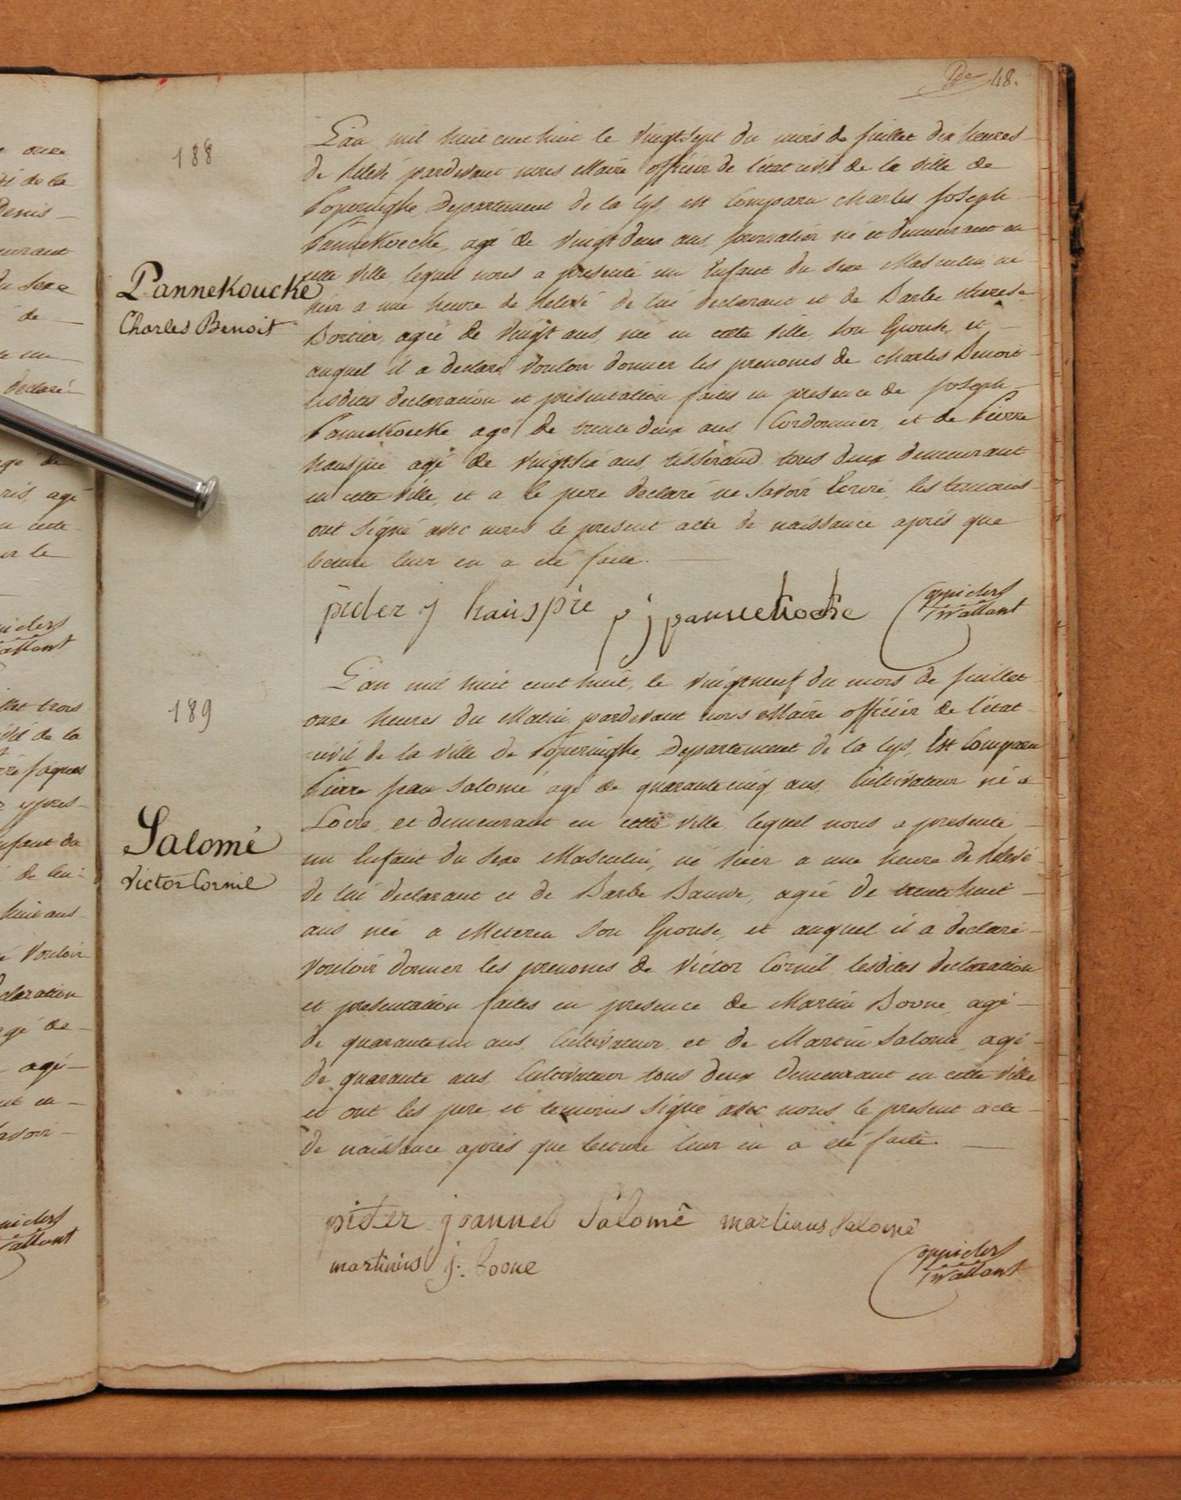 48.
188
L'an mil huit cent huit le vingtsept du mois de juillet dix heures
de relevé pardevant nous Maire officier de l'état civil de la ville de
Poperinghe Departement de la Lys est Comparu Charles Joseph
Pannekoecke, agé de vingt deux ans, journalier né et demeurant en
cette ville lequel nous a presenté un Enfant du sexe Masculin né
hier a une heure de relevé de lui declarant et de Barbe therese
agée de vingt ans, née en cette ville son Epouse, et
auquel il a declaré vouloir donner les prenoms de Charles Benoit
lesdites declaration et présentation faites en presence de joseph
Pannekoecke agé de trente deux ans Cordonnier, et de Pierre
hauspie agé de vingtsix ans tisserand tous deux demeurant
en cette ville, et a le pere declaré ne savoir Ecrire, les temoins
ont signé avec nous le present acte de naissance après que
lecture leur en a été faite.
Pannekoucke
Charles Benoit
pieter j hauspie p j pannekocke
189
L'an mil huit cent huit, le vingtneuf du mois de juillet
onze heures du Matin pardevant nous Maire officier de l'état
civil de la ville de Poperinghe, Departement de la Lys, Est Comparu
Pierre jean Salomé agé de quarantecinq ans, Cultivateur né a
Locre, et demeurant en cette ville lequel nous a presenté
un Enfant du sexe Masculin, né hier a une heure de relevé
de lui declarant et de Barbe agée de trentehuit
ans née a Meteren son Epouse, et auquel il a declaré
vouloir donner les prenoms de Victor Cornil lesdites declaration
et presentation faites en presence de Martin Boone agé
de ans, Cultivateur, et de Martin Salomé agé
de quarante ans, Cultivateur tous deux demeurant en cette ville
et ont les pere et temoins signé avec nous le present acte
de naissance après que lecture leur en a été faite.
Salomé
Victor Cornil
pieter joannes Salomé martinus Salomé
martinus j: boone